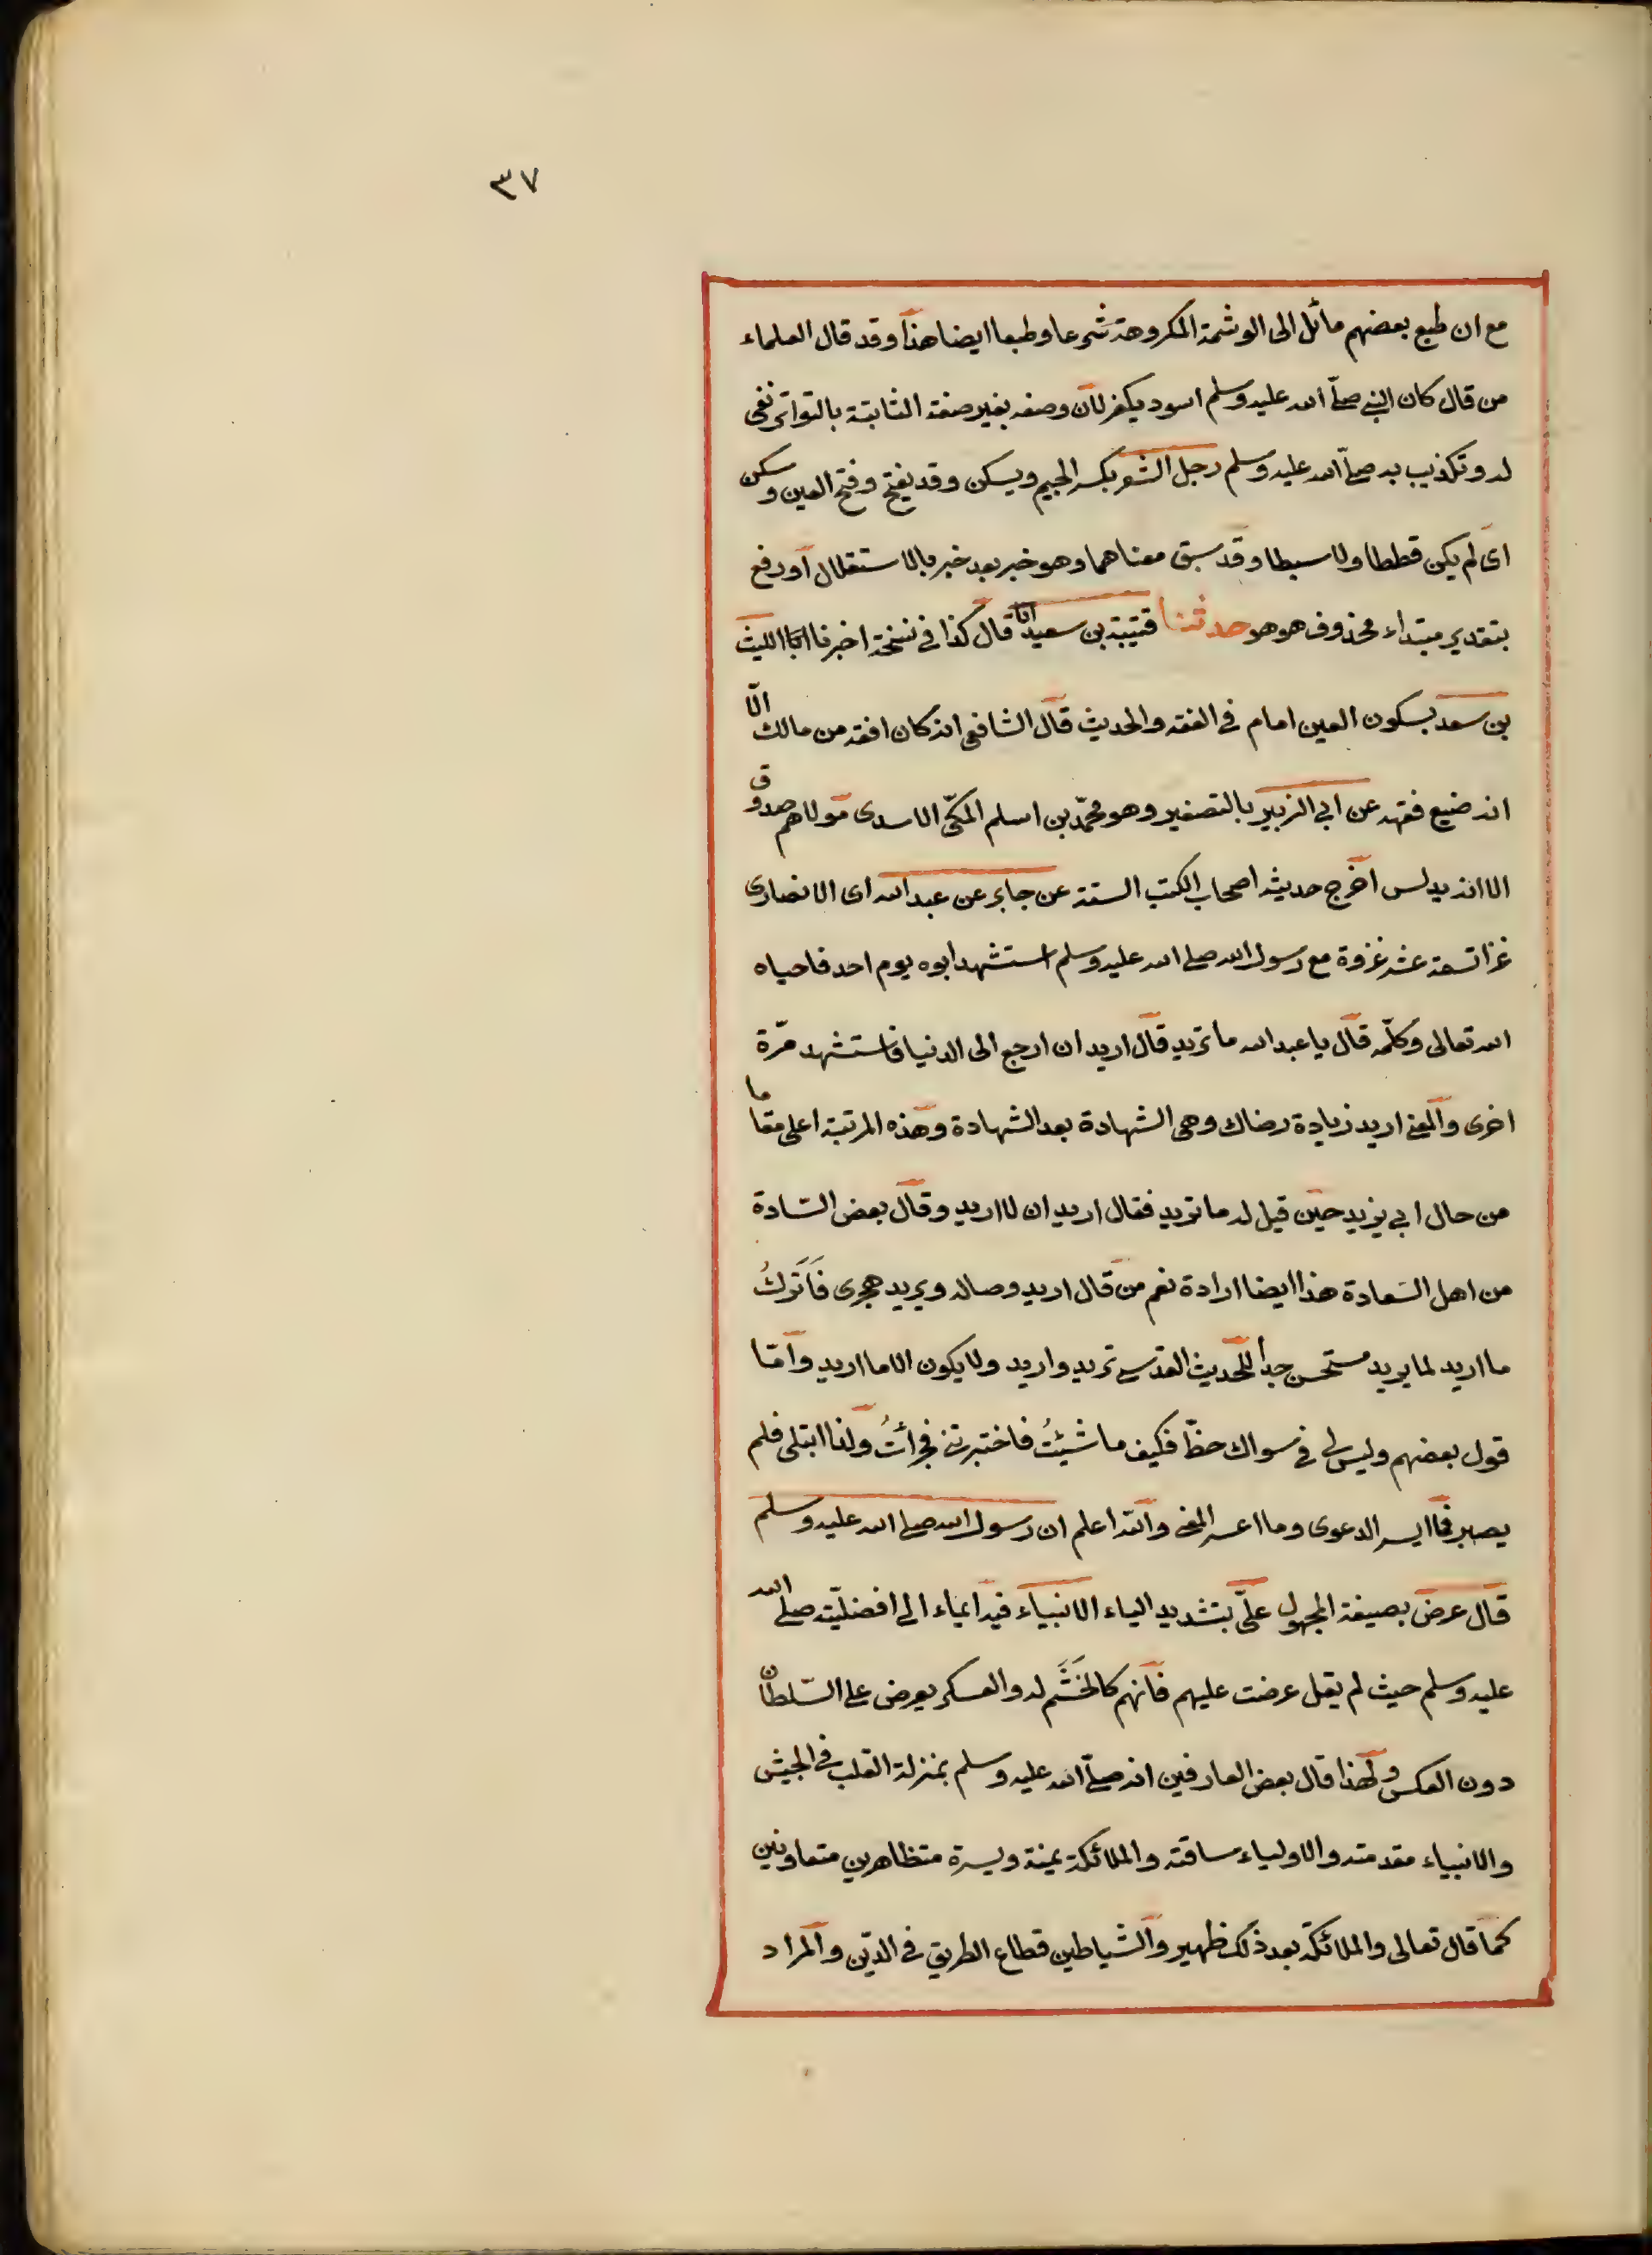 ٣٧
مع ان طبع بعضهم مائل الى الوشمة المكروهة شرعا وطبعا ايضا هذا وقد قال العلماء
من قال كان النبي صلّى الله عليه وسلم اسود يكفر لان وصفه بغير صفته الثابتة بالتواتر نفى
له وتكذيب به صلّى الله عليه وسلم رجل الشعر بكسر الجيم ويسكن وقد يفتح وفتح العين وسكن
اى لم يكن قططا ولا سبطا وقد سبق معناهما وهو خبر بعد خبر بالاستقلال او رفع
بتقدير مبتداء محذوف هو هو حدثنا قتيبة بن سعيد انا قال كذا في نسخة اخبرنا الليث
بن سعد بسكون العين امام في الفقه والحديث قال الشافعى انه كان افقه من مالك الّا
انه ضيع فقهه عن ابي الزبير بالتصغير وهو محمّد بن اسلم المكىّ الاسدى مولاهم صدوق
الا انه يدلس اخرج حديثه اصحاب الكتب الستة عن جابر عن عبد الله اى الانصارى
غزا تسعة عشر غزوة مع رسول الله صلى الله عليه وسلم استشهد ابوه يوم احد فاحياه
الله تعالى وكلّمه قال يا عبد الله ما تريد قال اريد ان ارجع الى الدنيا فاستشهد مرّة
اخرى والمعنى اريد زيادة رضاك وهى الشهادة بعد الشهادة وهذه المرتبة اعلى مقاما
من حال ابي يزيد حين قيل له ما تريد فقال اريد ان لا اريد وقال بعض السّادة
من اهل السّعادة هذا ايضا ارادة نعم من قال اريد وصاله ويريد هجرى فَاَتَركُ
ما اريد لما يريد مستحسن جداً للحديث القدسى تريد واريد ولا يكون الا ما اريد وامّا
قول بعضهم وليس لى في سواك حظّ فكيف ما شيئتُ فاختبرتنى فجرأتُ ولذا ابتلى فلم
يصبر فما ايسر الدعوى وما اعسر المعنى والله اعلم ان رسول الله صلى الله عليه وسلم
قال عرض بصيغة المجهول علىّ بتشديد الياء الانبياء فيه ايماء الى افضليّته صلى الله
عليه وسلم حيث لم يقل عرضت عليهم فانهم كالخَشَم له والعسكر يعرض على السّلطان
دون العكس ولهذا قال بعض العارفين انه صلّى الله عليه وسلم بمنزلة القلب في الجيش
والانبياء مقدمته والاولياء ساقته والملائكة يمينة ويسرة متظاهرين متعاونين
كما قال تعالى والملائكة بعد ذلك ظهير والشياطين قطاع الطريق في الدّين والمراد